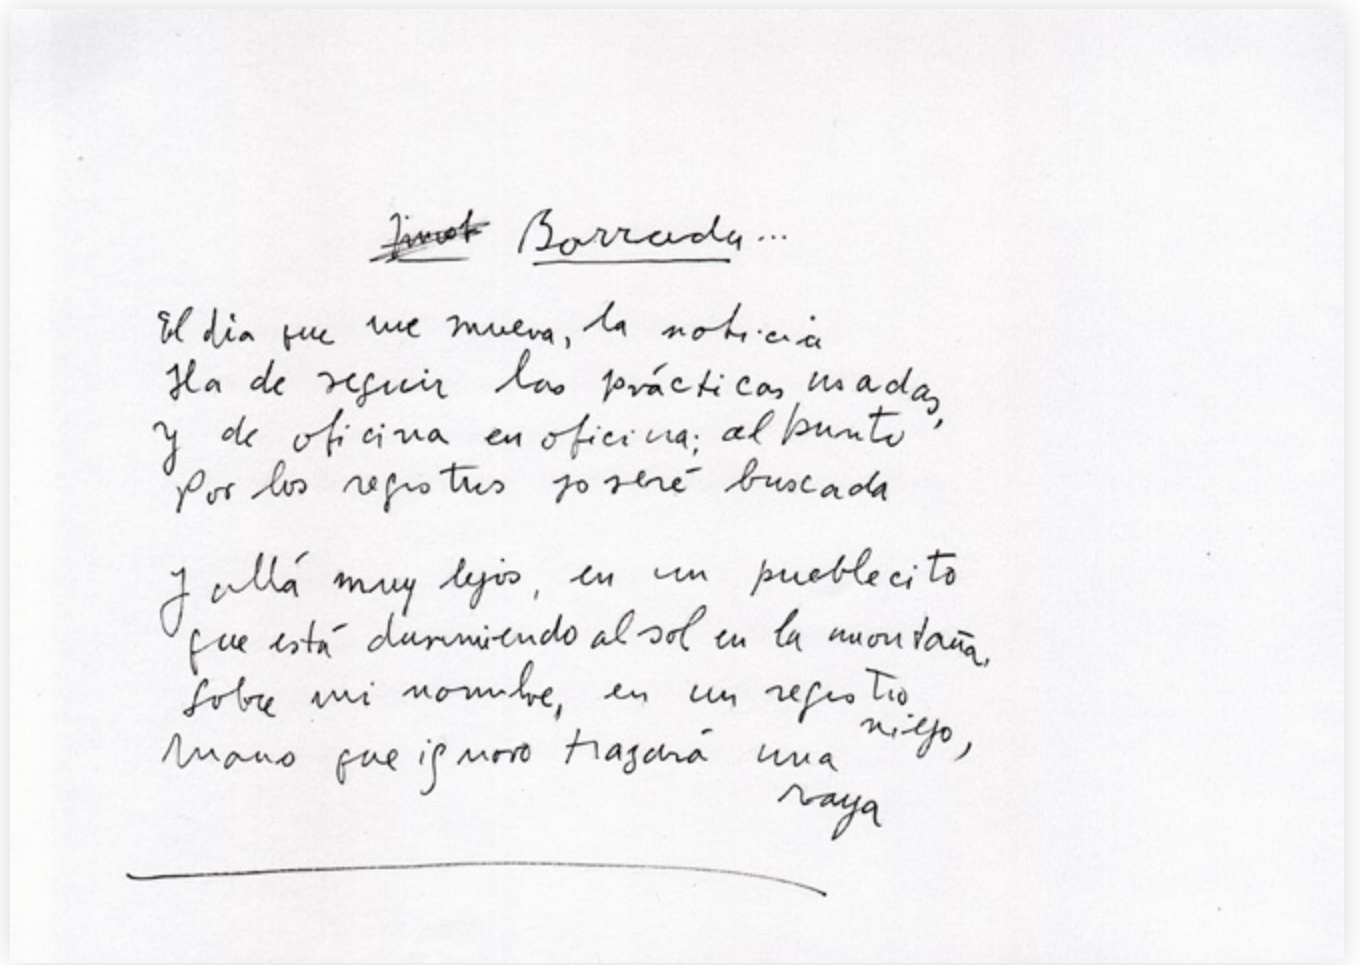 Borrada...
El dia que me muera, la noticia
Ha de seguir las prácticas usadas,
y de oficina en oficina; al punto
Por los registros yo seré buscada
Y allá muy lejos, en un pueblecito
que está durmiendo al sol en la montaña,
Sobre mi nombre, en un registro
viejo,
Mano que ignoro trazará una
raya